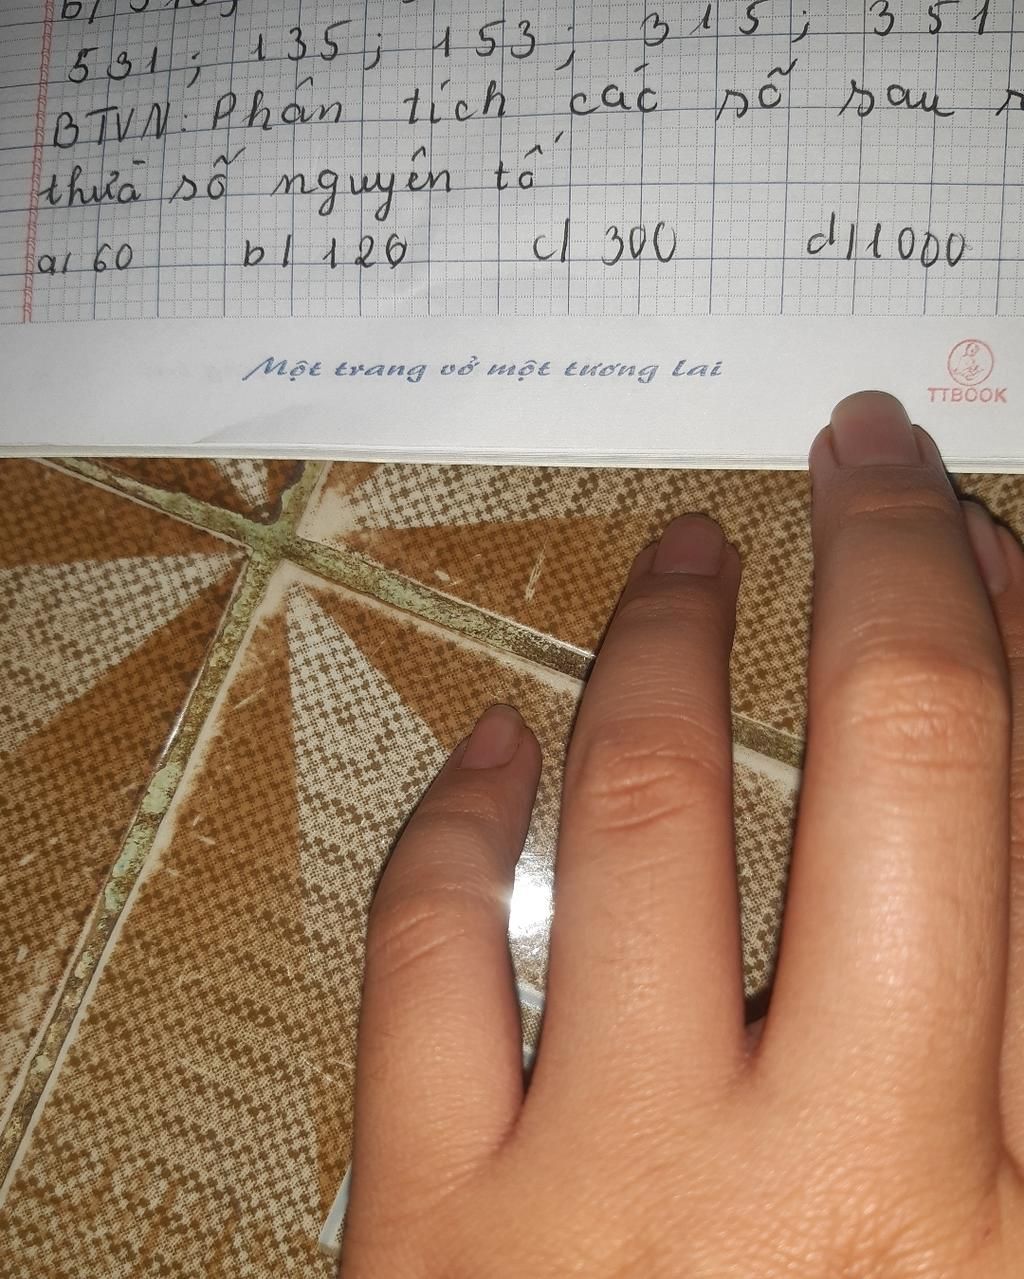 531; 135; 153; 315; 351
BTVN: Phân tích các số sau
thừa số nguyên tố
a/ 60 b/ 120 c/ 300 d/ 1000
Một trang vở một tương lai
TTBOOK